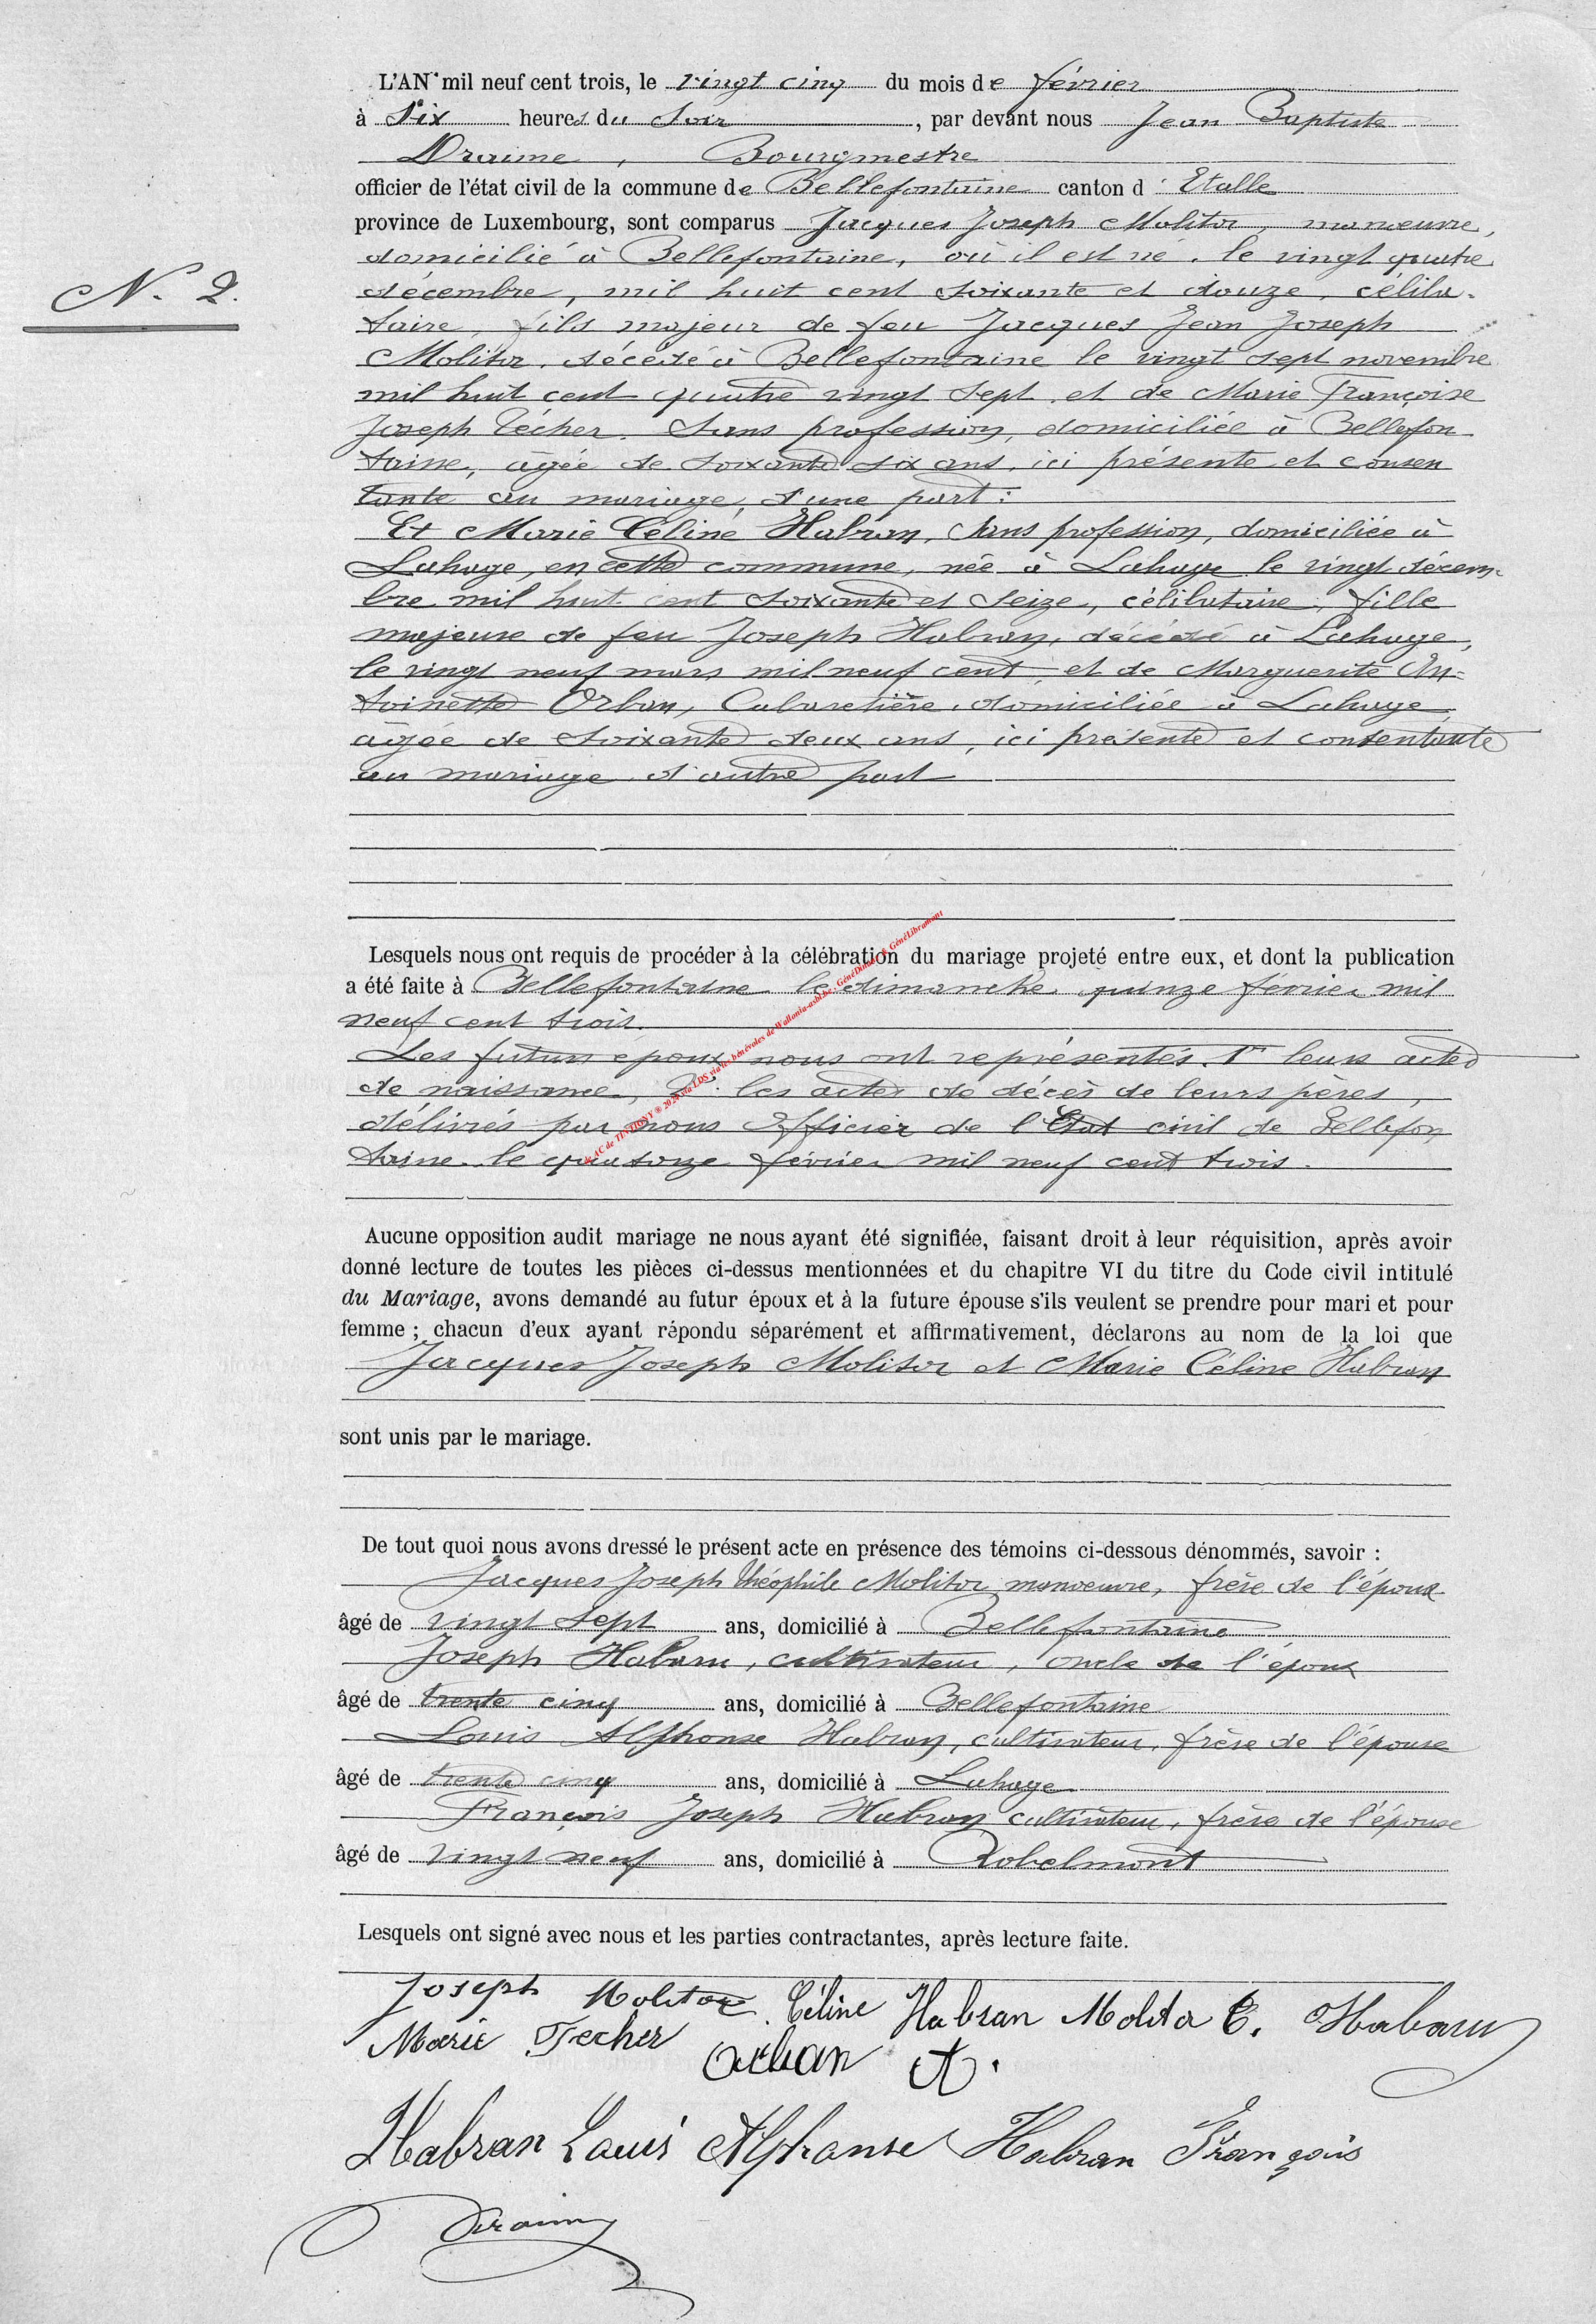 L'AN mil neuf cent trois, le vingt cinq du mois de février
à Six heures du Soir, par devant nous Jean Baptiste
Draime, Bourgmestre
officier de l'état civil de la commune de Bellefontaine canton d'Etalle
province de Luxembourg, sont comparus Jacques Joseph Molitor, manoeuvre,
domicilié à Bellefontaine, où il est né, le vingt quatre
décembre, mil huit cent soixante et douze, céliba-
taire, fils majeur de feu Jacques Jean Joseph
Molitor, décédé à Bellefontaine le vingt sept novembre
mil huit cent quatre vingt sept, et de Marie Françoise
Joseph Técher, Sans profession, domiciliée à Bellefon
taine, âgée de soixante six ans, ici présente et consen
tante au mariage, d'une part:
N. 2.
Et Marie Céline Habran, sans profession, domiciliée à
Lahage, en cette commune, née à Lahage le vingt décem-
bre mil huit cent soixante et seize, célibataire, fille
majeure de feu Joseph Habran, décédé à Lahage,
le vingt neuf mars mil neuf cent, et de Marguerite An-
toinette Orban, Cabaretière, domiciliée à Lahage,
âgée de soixante deux ans, ici présente et consentante
au mariage d'autre part
Lesquels nous ont requis de procéder à la célébration du mariage projeté entre eux, et dont la publication
a été faite à Bellefontaine le dimanche quinze février mil
neuf cent trois.
Les futurs époux nous ont représentés, 1° leurs actes
de naissance, 2° les actes de décès de leurs pères,
délivrés par nous Officier de l'Etat civil de Bellefon
taine le quatorze février mil neuf cent trois.
© AC de TINTIGNY ® 2024 via LDS via les bénévoles de Wallonia-asbl.be : GénéDinant & GénéLibramont
Aucune opposition audit mariage ne nous ayant été signifiée, faisant droit à leur réquisition, après avoir
donné lecture de toutes les pièces ci-dessus mentionnées et du chapitre VI du titre du Code civil intitulé
du Mariage, avons demandé au futur époux et à la future épouse s'ils veulent se prendre pour mari et pour
femme ; chacun d'eux ayant répondu séparément et affirmativement, déclarons au nom de la loi que
Jacques Joseph Molitor et Marie Céline Habran
sont unis par le mariage.
De tout quoi nous avons dressé le présent acte en présence des témoins ci-dessous dénommés, savoir :
Jacques Joseph Théophile Molitor manoeuvre, frère de l'époux
âgé de vingt sept ans, domicilié à Bellefontaine
Joseph Habaru, cultivateur, oncle de l'époux
âgé de trente cinq ans, domicilié à Bellefontaine
Louis Alphonse Habran, cultivateur, frère de l'épouse
âgé de trente cinq ans, domicilié à Lahage
François Joseph Habran cultivateur, frère de l'épouse
âgé de vingt neuf ans, domicilié à Robelmont
Lesquels ont signé avec nous et les parties contractantes, après lecture faite.
Joseph Molitor Céline Habran Molitor C. Habaru
Marie Techer Orban A.
Habran Louis Alphonse Habran François
Draime